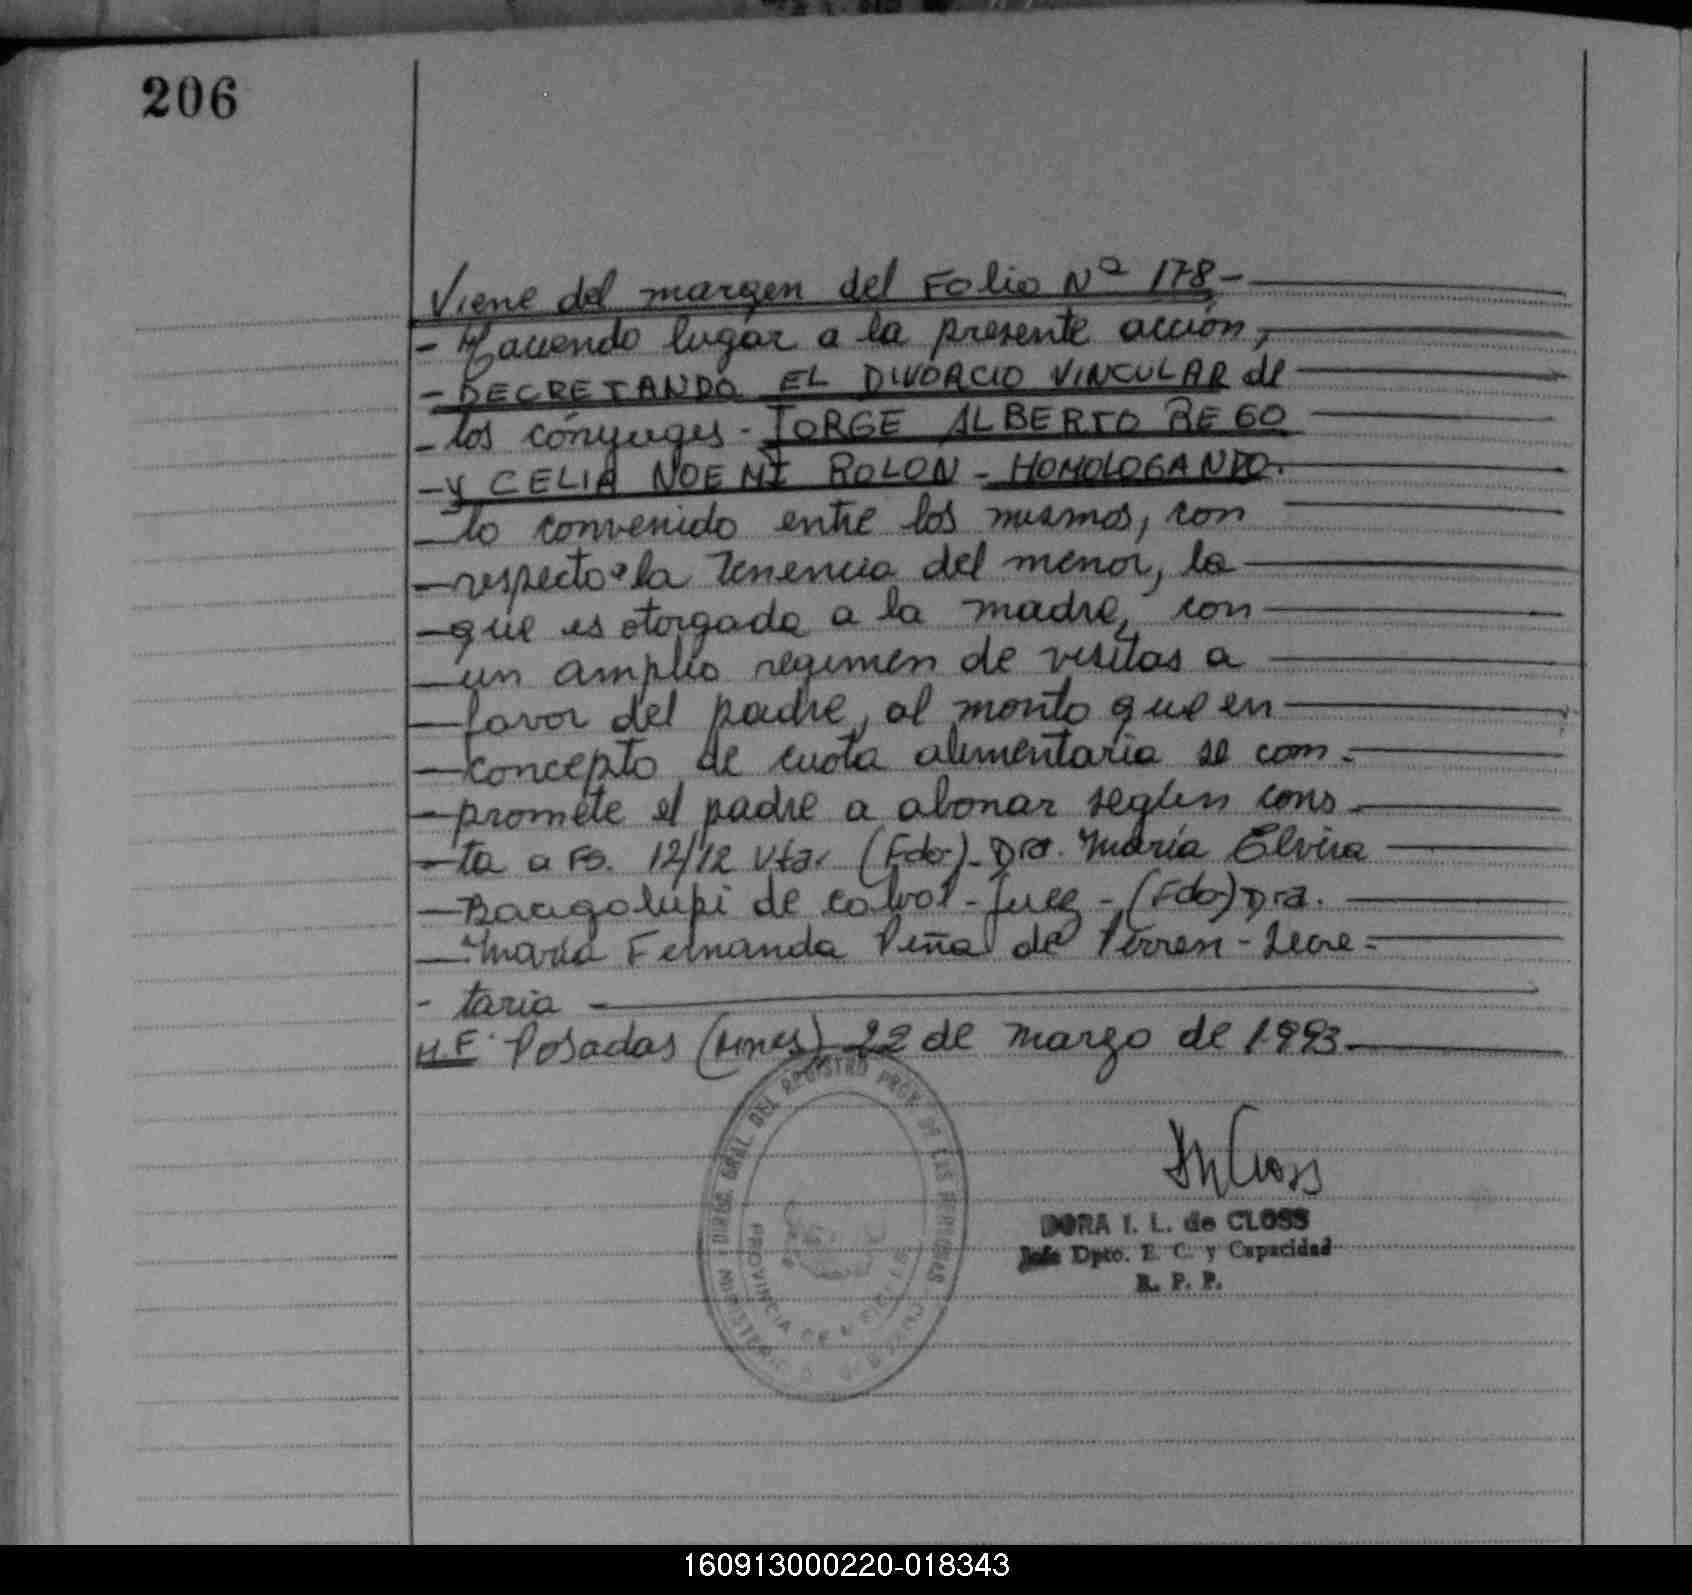 206
Viene del margen del Folio Nº 178-
- Haciendo lugar a la presente acción,
- DECRETANDO EL DIVORCIO VINCULAR de
- los cónyuges - JORGE ALBERTO REGO
- Y CELIA NOEMI ROLON - HOMOLOGANDO.
- lo convenido entre los mismos, con
- respecto a la Tenencia del menor, la
- que es otorgada a la madre, con
- un amplio regimen de visitas a
- favor del padre, al monto que en
- concepto de cuota alimentaria se com-
- promete el padre a abonar según cons-
- ta a Fs. 12/12 vta. (Fdo-)- Dra. María Elvira
- Bacigalupi de - Juez - (Fdo-) Dra.
- María Fernanda Peña de Perren - Secre-
- taria
H.F. Posadas (Mnes) 22 de Marzo de 1993
DIREC. GRAL DEL REGISTRO PROV. DE LAS PERSONAS
PROVINCIA DE MISIONES
DORA I. L. de CLOSS
Jefe Dpto. E. C. y Capacidad
R. P. P.
160913000220-018343